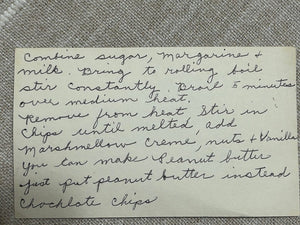 Combine sugar, Margarine +
milk. Bring to rolling boil
stir constantly. Broil 5 minutes
over medium heat.
Remove from heat Stir in
Chips until melted, add
Marshmellow Creme, nuts + Vanilla
You can make Peanut butter
Just put peanut butter instead
Chochlate chips